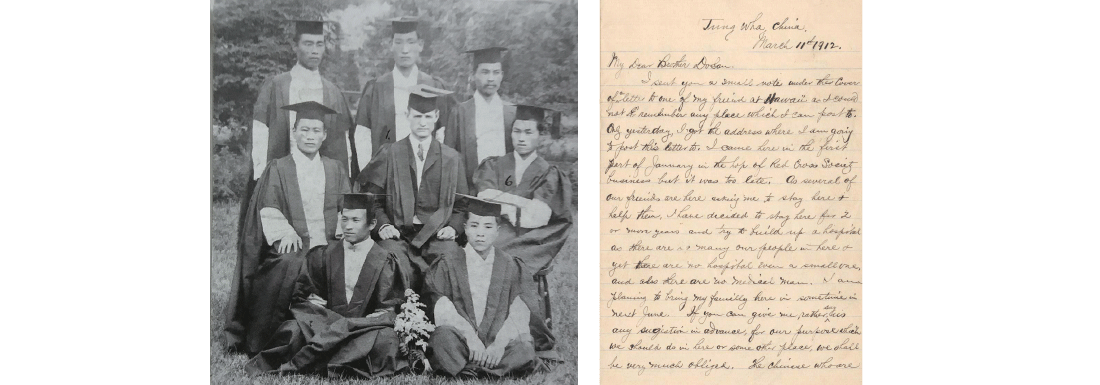 6
Tung Wha, China,
March 11th 1912.
My dear Brother Dosan
I sent you a small note under the Cover
of letter to one of my friend at Hawaii as I could
not remember any place which I can post to.
Only yesterday, I got the address where I am going
to post this letter to. I came here in the first
part of January in the hop of Red Cross Society
business but it was too late. As several of
our friends are here asking me to stay here &
help them, I have decided to stay here for 2
or more years and try to build up a hospital
as there are so many our people in here &
yet there are no hospital even a small one,
and also there are no medical man. I am
planing to bring my familly here in sometime in
next June. If you can give me, rather say, us
any sugistion in advance, for our purpose which
we should do in here or some other place, we shall
be very much obliged. The Chinese who are